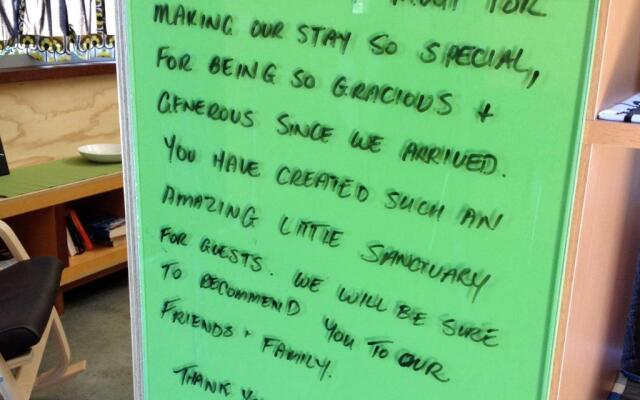 FOR
MAKING OUR STAY SO SPECIAL,
FOR BEING SO GRACIOUS +
GENEROUS SINCE WE ARRIVED.
YOU HAVE CREATED SUCH AN
AMAZING LITTLE SANCTUARY
FOR GUESTS. WE WILL BE SURE
TO RECOMMEND YOU TO OUR
FRIENDS + FAMILY.
THANK YOU